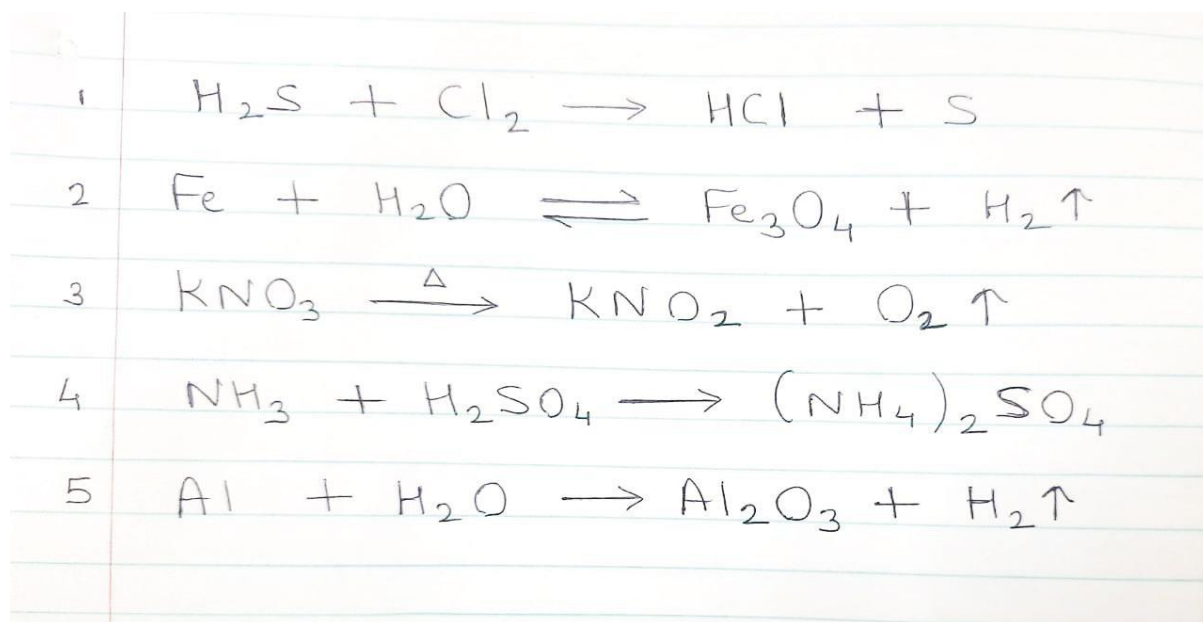 1 H₂S + Cl₂ → HCl + S
2 Fe + H₂O ⇌ Fe₃O₄ + H₂ ↑
3 KNO₃ —Δ→ KNO₂ + O₂ ↑
4 NH₃ + H₂SO₄ → (NH₄)₂SO₄
5 Al + H₂O → Al₂O₃ + H₂↑